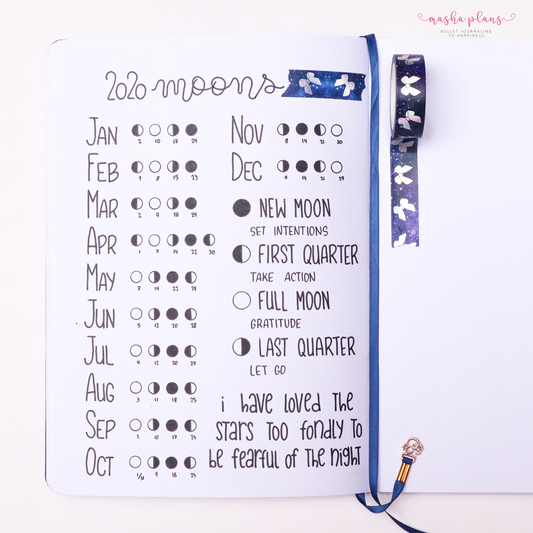 masha plans
BULLET JOURNALING
TO HAPPINESS
2020 moons
JAN
2 10 17 24
FEB
1 9 15 23
MAR
2 9 16 24
APR
1 7 14 22 30
MAY
7 14 22 29
JUN
5 12 20 28
JUL
4 12 20 27
AUG
3 11 18 25
SEP
2 10 17 23
OCT
1/31 9 16 23
NOV
8 14 21 30
DEC
7 14 21 29
NEW MOON
SET INTENTIONS
FIRST QUARTER
TAKE ACTION
FULL MOON
GRATITUDE
LAST QUARTER
LET GO
i have loved the
stars too fondly to
be fearful of the night